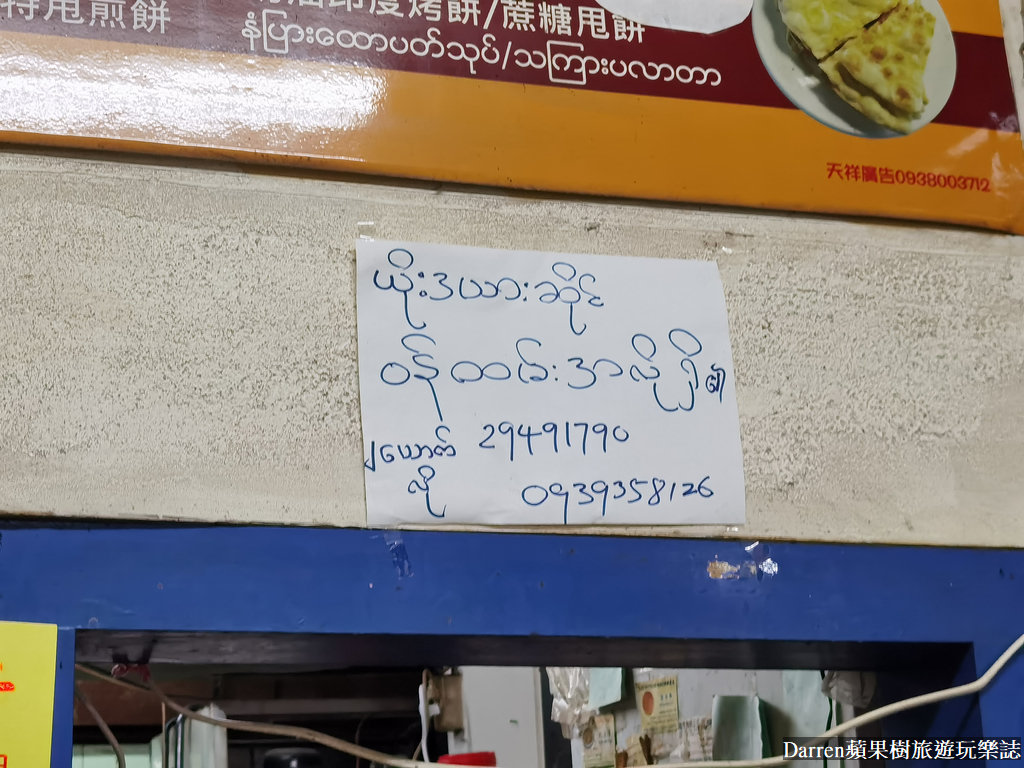 特甩煎餅
油印度烤餅/蔗糖甩餅
နံပြားထောပတ်သုပ်/သကြားပလာတာ
天祥廣告0938003712
ယိုးဒယားဆိုင်
ဝန်ထမ်းအာလိုရှိ၏
၂ယောက် 29491790
လို 0939358126
Darren蘋果樹旅遊玩樂誌